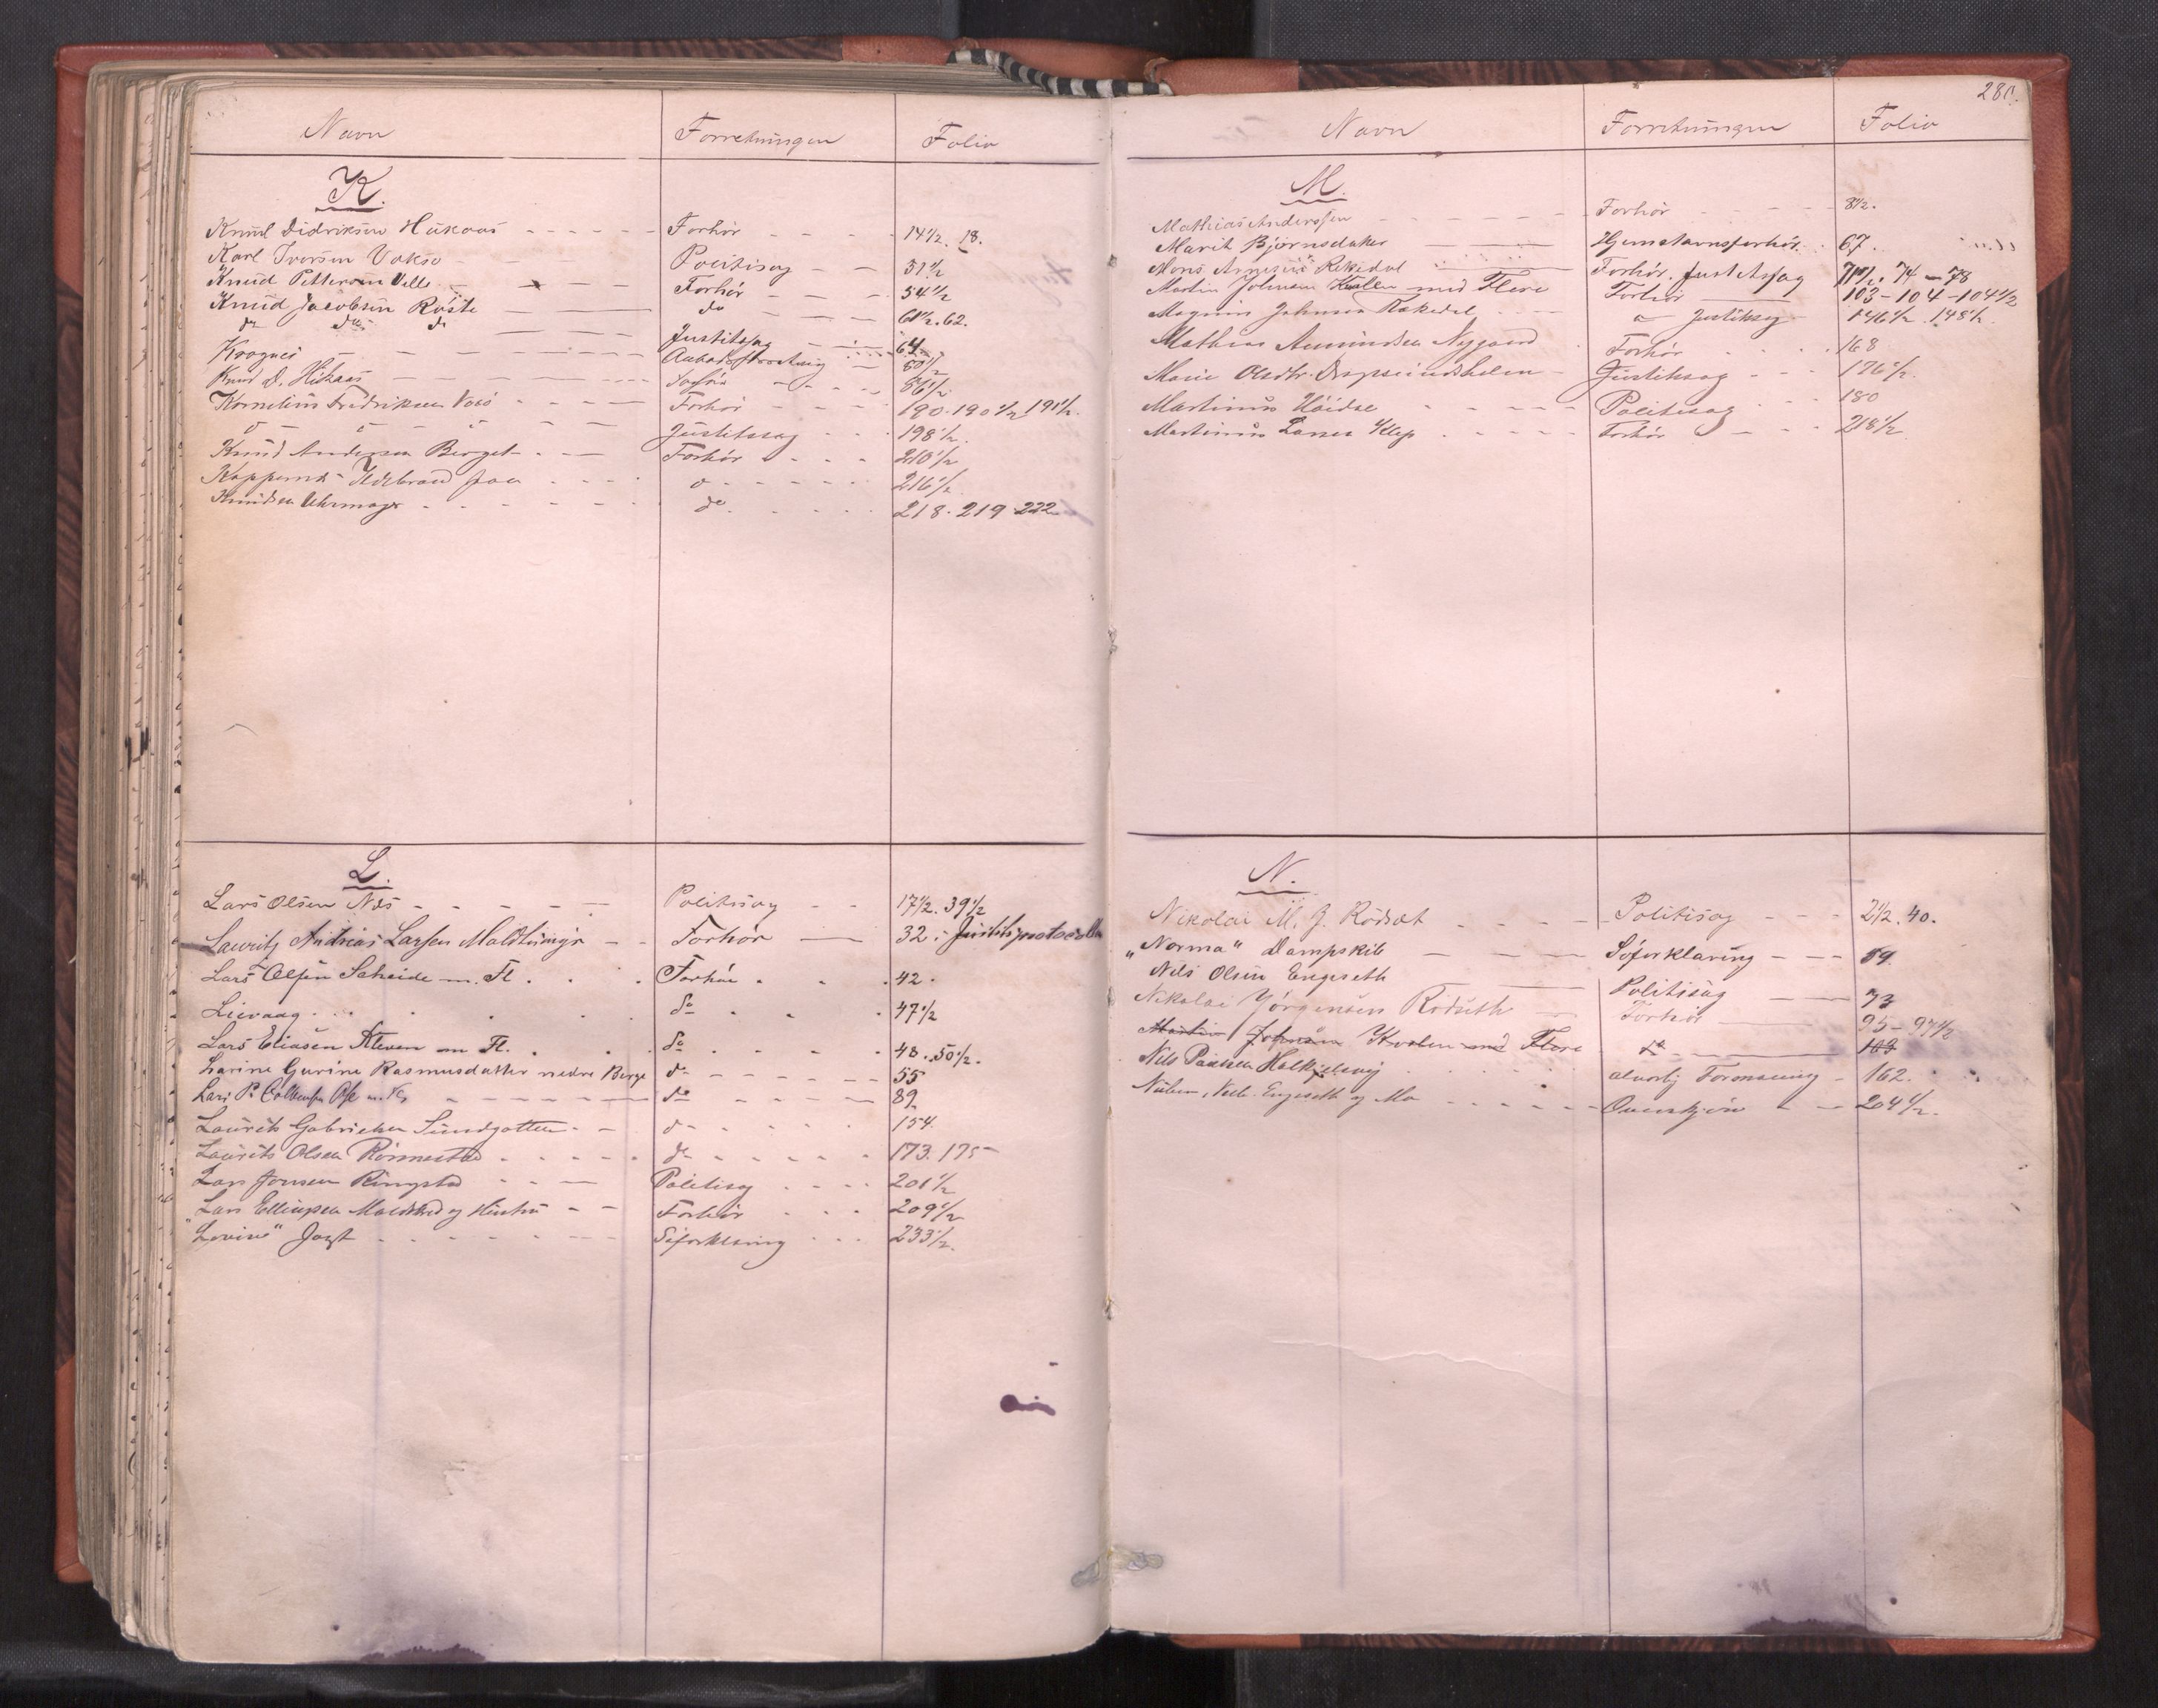 Navn Forretningen Folio
K.
Knud Didriksen Hukaas Forhör 14 1/2. 18.
Karl Iversen Vakso Politisag 31 1/2
Knud Pettersen Velle Forhör 54 1/2
Knud Jacobsen Röste do 61 1/2. 62.
do do do Justitssag 64
Krognes 80 1/2
Knud D. Hukaas 86 1/2
Kornelius Fredriksen Forhör 190. 190 1/2 191 1/2.
o o o Justitssag 198 1/2.
Knud Andersen Berget Forhör 210 1/2
o 216 1/2
Knudsen Uhrmager do 218. 219. 222
L.
Lars Olsen Nes Politisag 17 1/2. 39 1/2
Lauritz Andreas Larsen Forhör 32 i Justitsprotocollen
Lars Olsen Scheide m. Fl. Forhör 42.
Lievaag do 47 1/2
Lars Eliasen Kleven m Fl. do 48. 50 1/2.
Larine Gurine Rasmusdatter nedre Berge do 55
Lars P. do 89
Laurits Gabrielsen Sundgotten do 154.
Laurits Olsen Rönnestad do 173. 175
Lars Jonsen Ringstad Politisag 201 1/2
Lars Ellingsen og Hustru Forhör 209 1/2
"Lovise" Jagt Söforklaring 233 1/2.
280.
Navn Forretningen Folio
M.
Mathias Anderssen Forhör 8 1/2.
Marit Björnsdatter Hjemstavnsforhör 67.
Mons Rekedal Forhör. Justitssag 71 1/2. 74 – 78
Martin Johnsen Kvalen med Flere Forhör 103 – 104 – 104 1/2
Magnus Johnsen Rekedal o Justitssag 146 1/2. 148 1/2.
Mathias Amundsen Nygaard Forhör 168
Marie Olsdtr. Justitssag 176 1/2.
Martinus Höidal Politisag 180
Martinus Larsen Klep Forhör 218 1/2
N.
Nikolai M. J. Rödset Politisag 2 1/2. 40.
"Norma" Dampskib Söforklaring 59.
Nils Olsen Engeseth Politisag 73
Nikolai Jörgensen Rödseth Forhör 95 – 97 1/2
Martin Johnsen Kvalen med Flere do 103
Nils Paulsen alvorlig Formaning 162.
Engeseth og Mo 204 1/2.